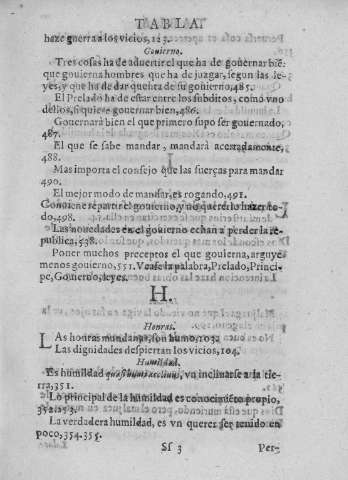 TABLA
haze guerra a los vicios, 123.
Gouierno.
Tres cosas ha de aduertir el que ha de gouernar bié:
que gouierna hombres que ha de juzgar, segun las le-
yes, y que ha de dar queta de su gouierno, 485.
El Prelado ha de estar entre los subditos, como vno
dellos, si quiere gouernar bien, 486.
Gouernará bien el que primero supo ser gouernado
487.
El que se sabe mandar, mandará acertadamente,
488.
Mas importa el consejo que las fuerças para mandar
490.
El mejor modo de mandar, es rogando, 491.
Conuiene repartir el gouierno, y no quererlo hazer to-
do, 498.
Las nouedades en el gouierno echan a perder la re-
publica, 538.
Poner muchos preceptos el que gouierna, arguye
menos gouierno, 551. Vease la palabra, Prelado, Princi-
pe, Gouierno, leyes.
H.
Honras.
LAs honras mundanas, son humo, 103.
Las dignidades despiertan los vicios, 104.
Humildad.
Es humildad quasi humi acliuis, vn inclinarse a la tie-
rra, 351.
Lo principal de la humildad es conocimiéto propio,
352. 353.
La verdadera humildad, es vn querer ser tenido en
poco, 354. 355.
Ss 3
Per-